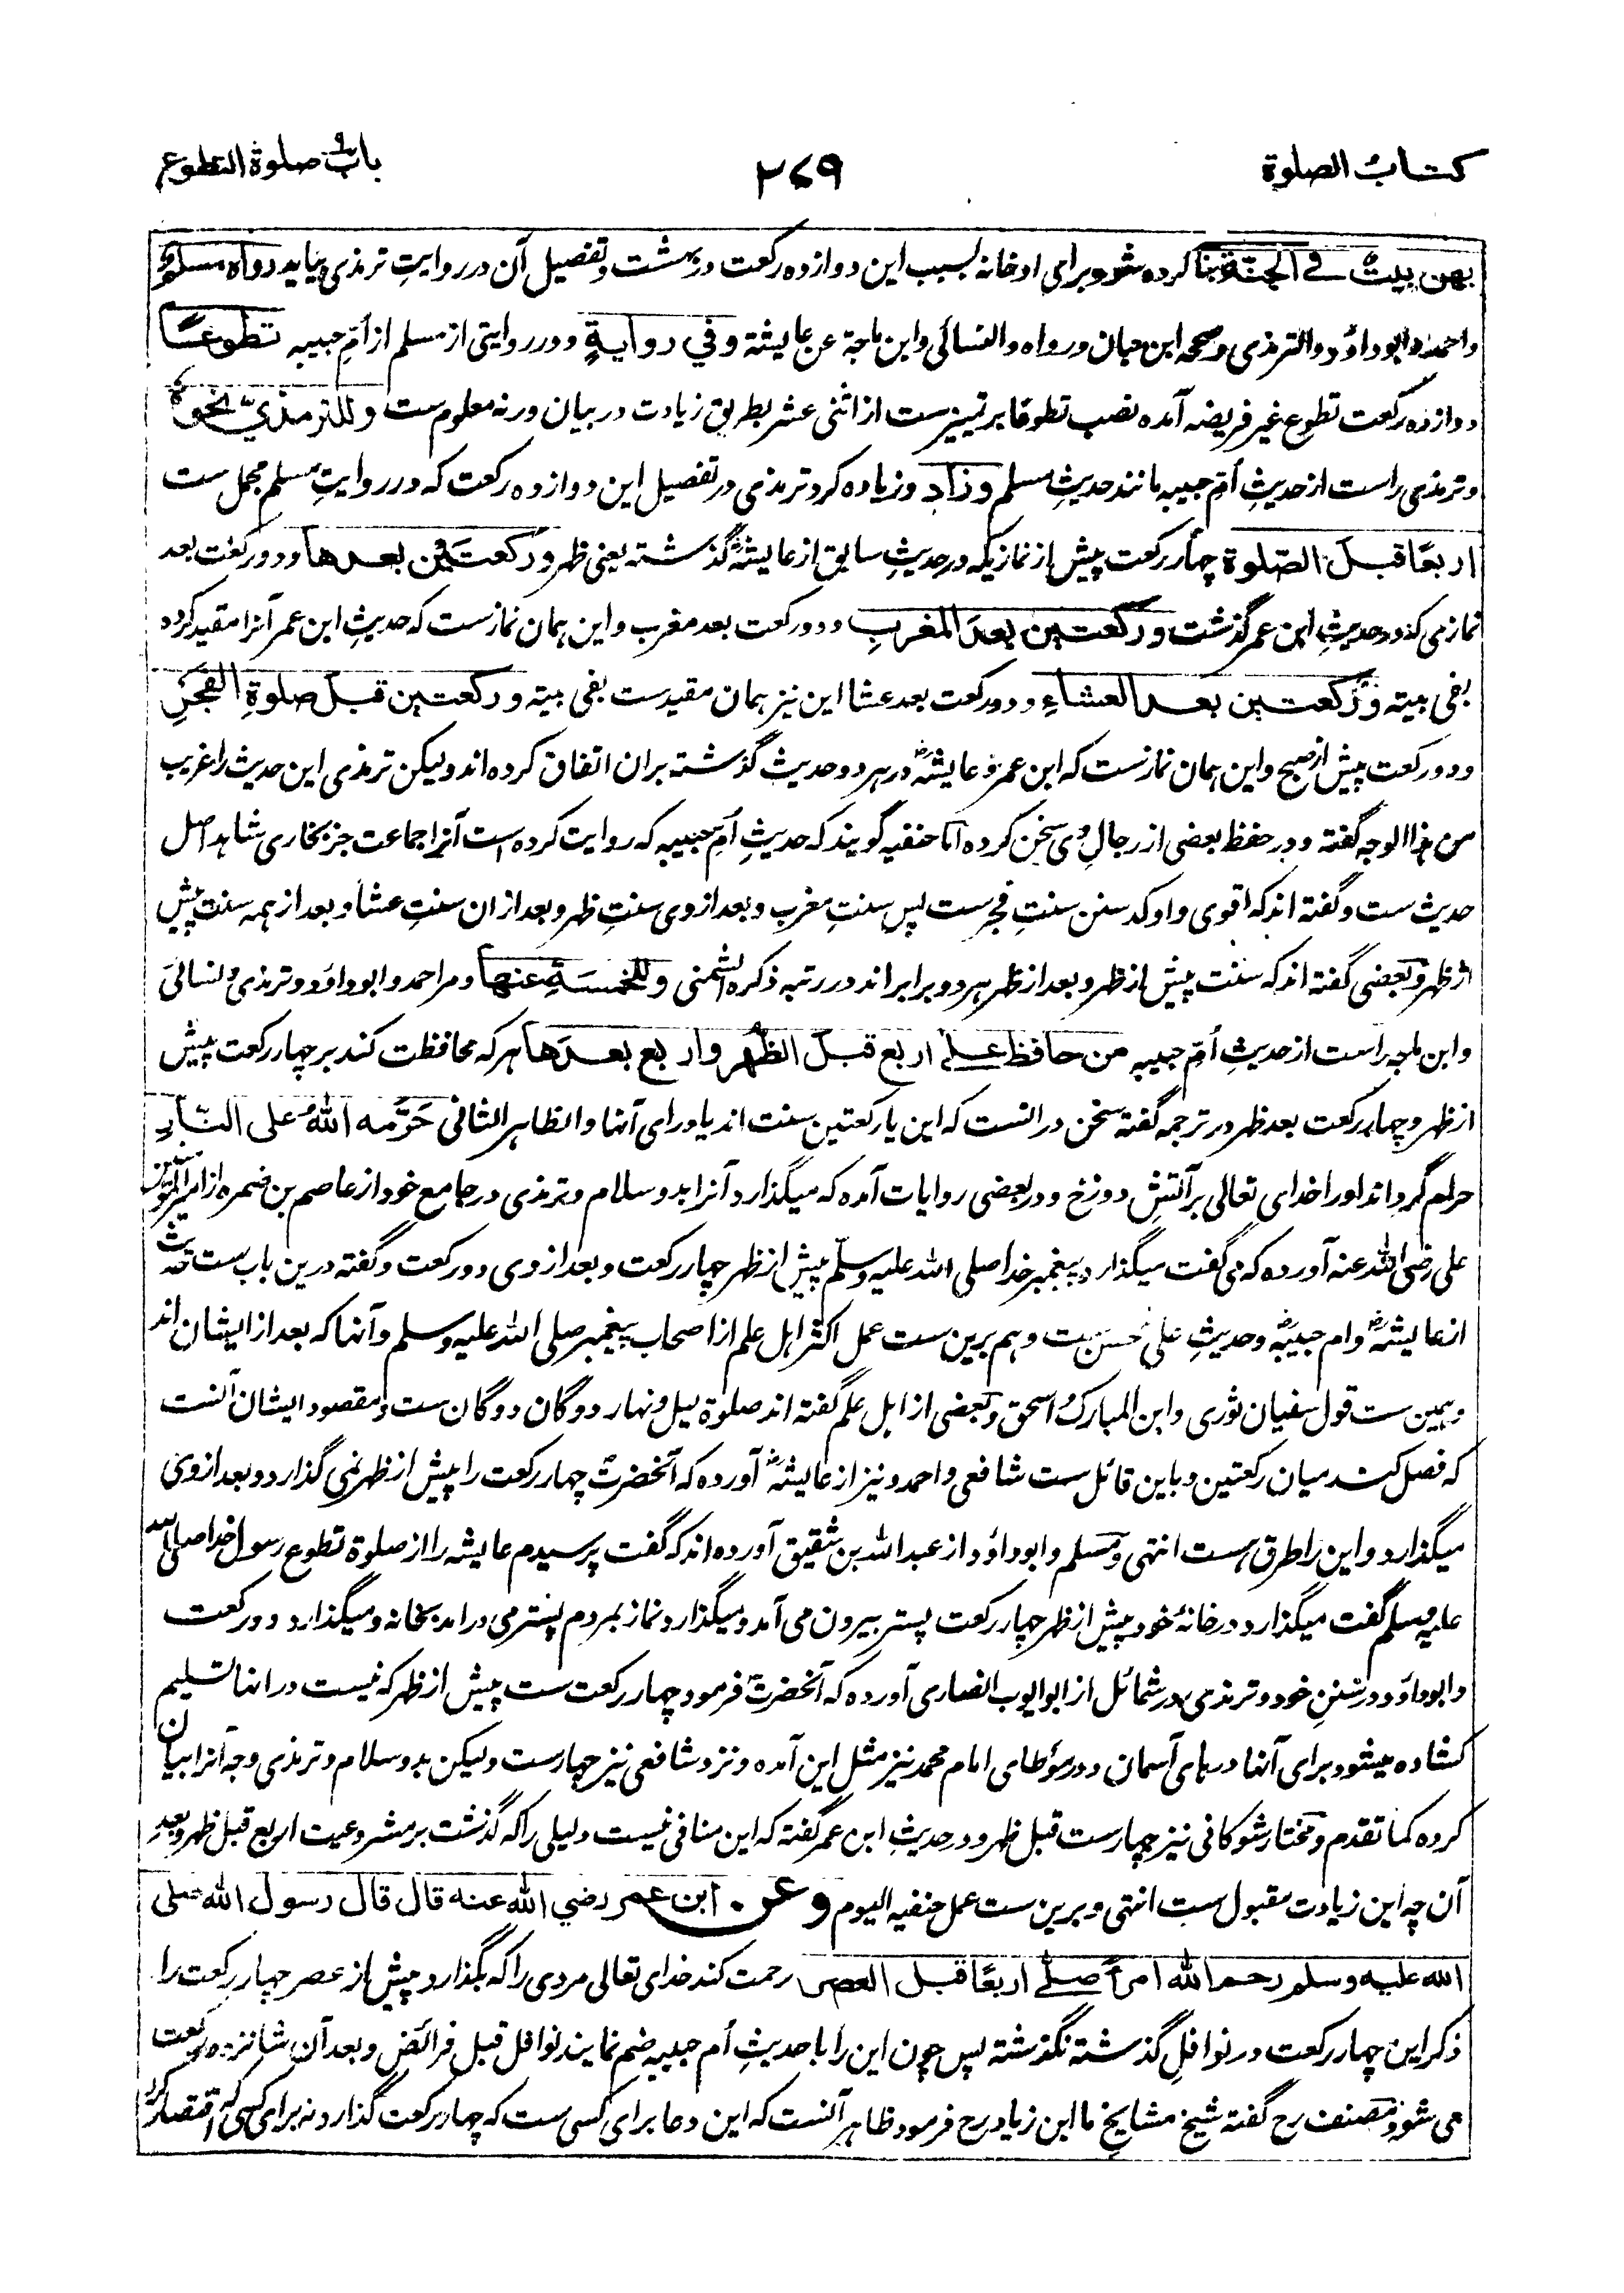 کتاب الصلوة
۲۷۹
باب صلوة التطوع
بهن بیت فی الجنة بنا کرده شود برای او خانه بسبب این دوازده رکعت در بهشت و تفصیل آن در روایتِ ترمذی بیاید رواه مسلم
و احمد و ابوداؤد و الترمذی و صححه ابن حبان و رواه و النسائی و ابن ماجة عن عایشة وفي روایةٍ و در روایتی از مسلم از اُمّ حبیبه تطوعًا
دوازده رکعت تطوع غیر فریضه آمده نصب تطوعًا بر تمییزست از اثنی عشر بطریق زیادت در بیان ورنه معلوم ست وللترمذيّ نحوه
و ترمذی راست از حدیثِ اُمّ حبیبه مانند حدیثِ مسلم وزاد و زیاده کرد ترمذی در تفصیل این دوازده رکعت که در روایتِ مسلم مجمل ست
اربعًا قبل الصّلوة چهار رکعت پیش از نمازیکه در حدیثِ سابق از عایشهؓ گذشته یعنی ظهر ورکعتین بعدها و دو رکعت بعد
نمازی که در حدیثِ ابن عمر گذشت ورکعتین بعدَ المغربِ و دو رکعت بعد مغرب و این همان نمازست که حدیثِ ابن عمر آنرا مقید کرده
بفی بیته ورکعتین بعد العشاءِ و دو رکعت بعد عشا این نیز همان مقیدست بفی بیته ورکعتین قبل صلوةِ الفجرِ
و دو رکعت پیش از صبح و این همان نمازست که ابن عمر و عایشهؓ در هر دو حدیث گذشته بران اتفاق کرده اند و لیکن ترمذی این حدیث را غریب
من هذا الوجه گفته و در حفظ بعضی از رجالِ وی سخن کرده اما حنفیه گویند که حدیثِ اُمّ حبیبه که روایت کرده است آنرا جماعت جز بخاری شاهد اصل
حدیث ست و گفته اند که اقوی و اوکد سنن سنتِ فجر ست پس سنتِ مغرب و بعد از وی سنتِ ظهر و بعد ازان سنتِ عشا و بعد از همه سنت پیش
از ظهر و بعضی گفته اند که سنت پیش از ظهر و بعد از ظهر هر دو برابر اند در رتبه ذکره الشمنی وللخمسةِ عنها و مر احمد و ابوداؤد و ترمذی و نسائی
و ابن ماجه راست از حدیثِ اُمّ حبیبه من حافظ علی اربع قبل الظهر واربع بعدَها هر که محافظت کند بر چهار رکعت پیش
از ظهر و چهار رکعت بعد ظهر در ترجمه گفته سخن درانست که این یا رکعتین سنت اند یا ورای آنها و الظاهر الثانی حَرَّمه اللهُ علی النارِ
حرام گرداند او را خدای تعالی بر آتشِ دوزخ و در بعضی روایات آمده که میگذارد آنرا بدو سلام و ترمذی در جامع خود از عاصم بن ضمره از امیرالمؤمنین
علی رضی الله عنه آورده که می گفت میگذارد پیغمبر خدا صلی الله علیه وسلّم پیش از ظهر چهار رکعت و بعد از وی دو رکعت و گفته درین باب ست حدیث
از عایشهؓ و ام حبیبهؓ و حدیثِ علی حسن ست و هم برین ست عمل اکثر اهل علم از اصحاب پیغمبر صلی الله علیه وسلم و آنها که بعد از ایشان اند
و همین ست قول سفیان ثوری و ابن المبارک و اسحق و بعضی از اهل علم گفته اند صلوة لیل و نهار دوگان دوگان ست و مقصود ایشان آنست
که فصل کند میان رکعتین و باین قائل ست شافعی و احمد و نیز از عایشهؓ آورده که آنحضرتؐ چهار رکعت را پیش از ظهر نمی گذارد و بعد از وی
میگذارد و این را طرق ست انتهی و مسلم و ابوداؤد از عبد الله بن شقیق آورده اند که گفت پرسیدم عایشه را از صلوة تطوع رسولِ خدا صلی الله
علیه وسلم گفت میگذارد در خانهٔ خود پیش از ظهر چهار رکعت پستر بیرون می آمد و میگذارد نماز بمردم پستر می درامد بخانه و میگذارد دو رکعت
و ابوداؤد در سننِ خود و ترمذی در شمائل از ابو ایوب انصاری آورده که آنحضرتؐ فرمود چهار رکعت ست پیش از ظهر که نیست درانها تسلیم
کشاده میشود برای آنها درهای آسمان و در مؤطای امام محمد نیز مثلِ این آمده و نزد شافعی نیز چهارست و لیکن بدو سلام و ترمذی وجه آنرا بیان
کرده کما تقدم و مختار شوکانی نیز چهارست قبل ظهر و در حدیثِ ابن عمر گفته که این منافی نیست دلیلی را که گذشت بر مشروعیت اربع قبل ظهر و بعدِ
آن چه این زیادت مقبول ست انتهی و برین ست عمل حنفیه الیوم وعن ابن عمر رضي الله عنه قال قال رسول الله صلی
الله علیه وسلم رحم الله امرأً صلّی اربعًا قبل العصر رحمت کند خدای تعالی مردی را که بگذارد پیش از عصر چهار رکعت را
ذکر این چهار رکعت در نوافلِ گذشته نگذشته پس چون این را با حدیثِ اُم حبیبه ضم نمایند نوافل قبل فرائض و بعد آن شانزده رکعت
می شود و مصنف رح گفته شیخِ مشایخِ ما ابن زیاد رح فرمود ظاهر آنست که این دعا برای کسی ست که چهار رکعت گذارد نه برای کسی که اقتصار کرد